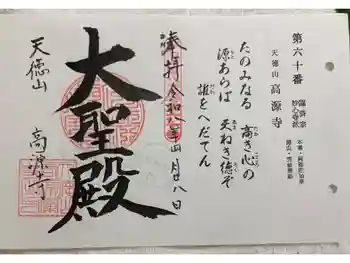 第六十番
天徳山 高源寺
臨済宗
妙心寺派
たのみなる 高き心の
源あらは 天ねき徳ぞ
誰をへだてん
奉拝 令和八年四月廿八日
大聖殿
天徳山
高源寺